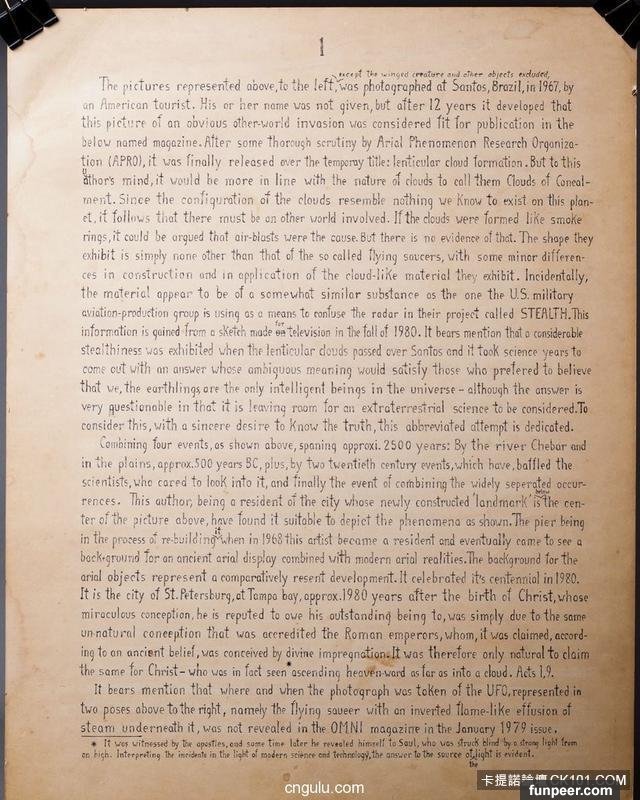 1
except the winged creature and other objects excluded,
The pictures represented above, to the left, was photographed at Santos, Brazil, in 1967, by
an American tourist. His or her name was not given, but after 12 years it developed that
this picture of an obvious other-world invasion was considered fit for publication in the
below named magazine. After some thorough scrutiny by Arial Phenomenon Research Organiza-
tion (APRO), it was finally released over the temporay title: lenticular cloud formation. But to this
author's mind, it would be more in line with the nature of clouds to call them Clouds of Conceal-
ment. Since the configuration of the clouds resemble nothing we know to exist on this plan-
et, it follows that there must be an other world involved. If the clouds were formed like smoke
rings, it could be argued that air-blasts were the cause. But there is no evidence of that. The shape they
exhibit is simply none other than that of the so called flying saucers, with some minor differen-
ces in construction and in application of the cloud-like material they exhibit. Incidentally,
the material appear to be of a somewhat similar substance as the one the U.S. military
aviation-production group is using as a means to confuse the radar in their project called STEALTH. This
for
information is gained from a sketch made on television in the fall of 1980. It bears mention that a considerable
stealthiness was exhibited when the lenticular clouds passed over Santos and it took science years to
come out with an answer whose ambiguous meaning would satisfy those who prefered to believe
that we, the earthlings, are the only intelligent beings in the universe – although the answer is
very questionable in that it is leaving room for an extraterrestrial science to be considered. To
consider this, with a sincere desire to know the truth, this abbreviated attempt is dedicated.
Combining four events, as shown above, spaning approxi. 2500 years: By the river Chebar and
in the plains, approx. 500 years BC, plus, by two twentieth century events, which have, baffled the
scientists, who cared to look into it, and finally the event of combining the widely seperated occur-
below
rences. This author, being a resident of the city whose newly constructed 'landmark' is the cen-
ter of the picture above, have found it suitable to depict the phenomena as shown. The pier being
it
in the process of re-building when in 1968 this artist became a resident and eventually came to see a
back-ground for an ancient arial display combined with modern arial realities. The background for the
arial objects represent a comparatively resent development. It celebrated it's centennial in 1980.
It is the city of St. Petersburg, at Tampa bay, approx. 1980 years after the birth of Christ, whose
miraculous conception, he is reputed to owe his outstanding being to, was simply due to the same
un-natural conception that was accredited the Roman emperors, whom, it was claimed, accord-
ing to an ancient belief, was conceived by divine impregnation. It was therefore only natural to claim
the same for Christ – who was in fact seen * ascending heaven-ward as far as into a cloud. Acts 1,9.
It bears mention that where and when the photograph was taken of the UFO, represented in
two poses above to the right, namely the flying saueer with an inverted flame-like effusion of
steam underneath it, was not revealed in the OMNI magazine in the January 1979 issue.
* It was witnessed by the apostles, and some time later he revealed himself to Saul, who was struck blind by a strong light from
on high. Interpreting the incidents in the light of modern science and technology, the answer to the source of light is evident.
the
cngulu.com
卡提諾論壇 CK101.COM
funpeer.com